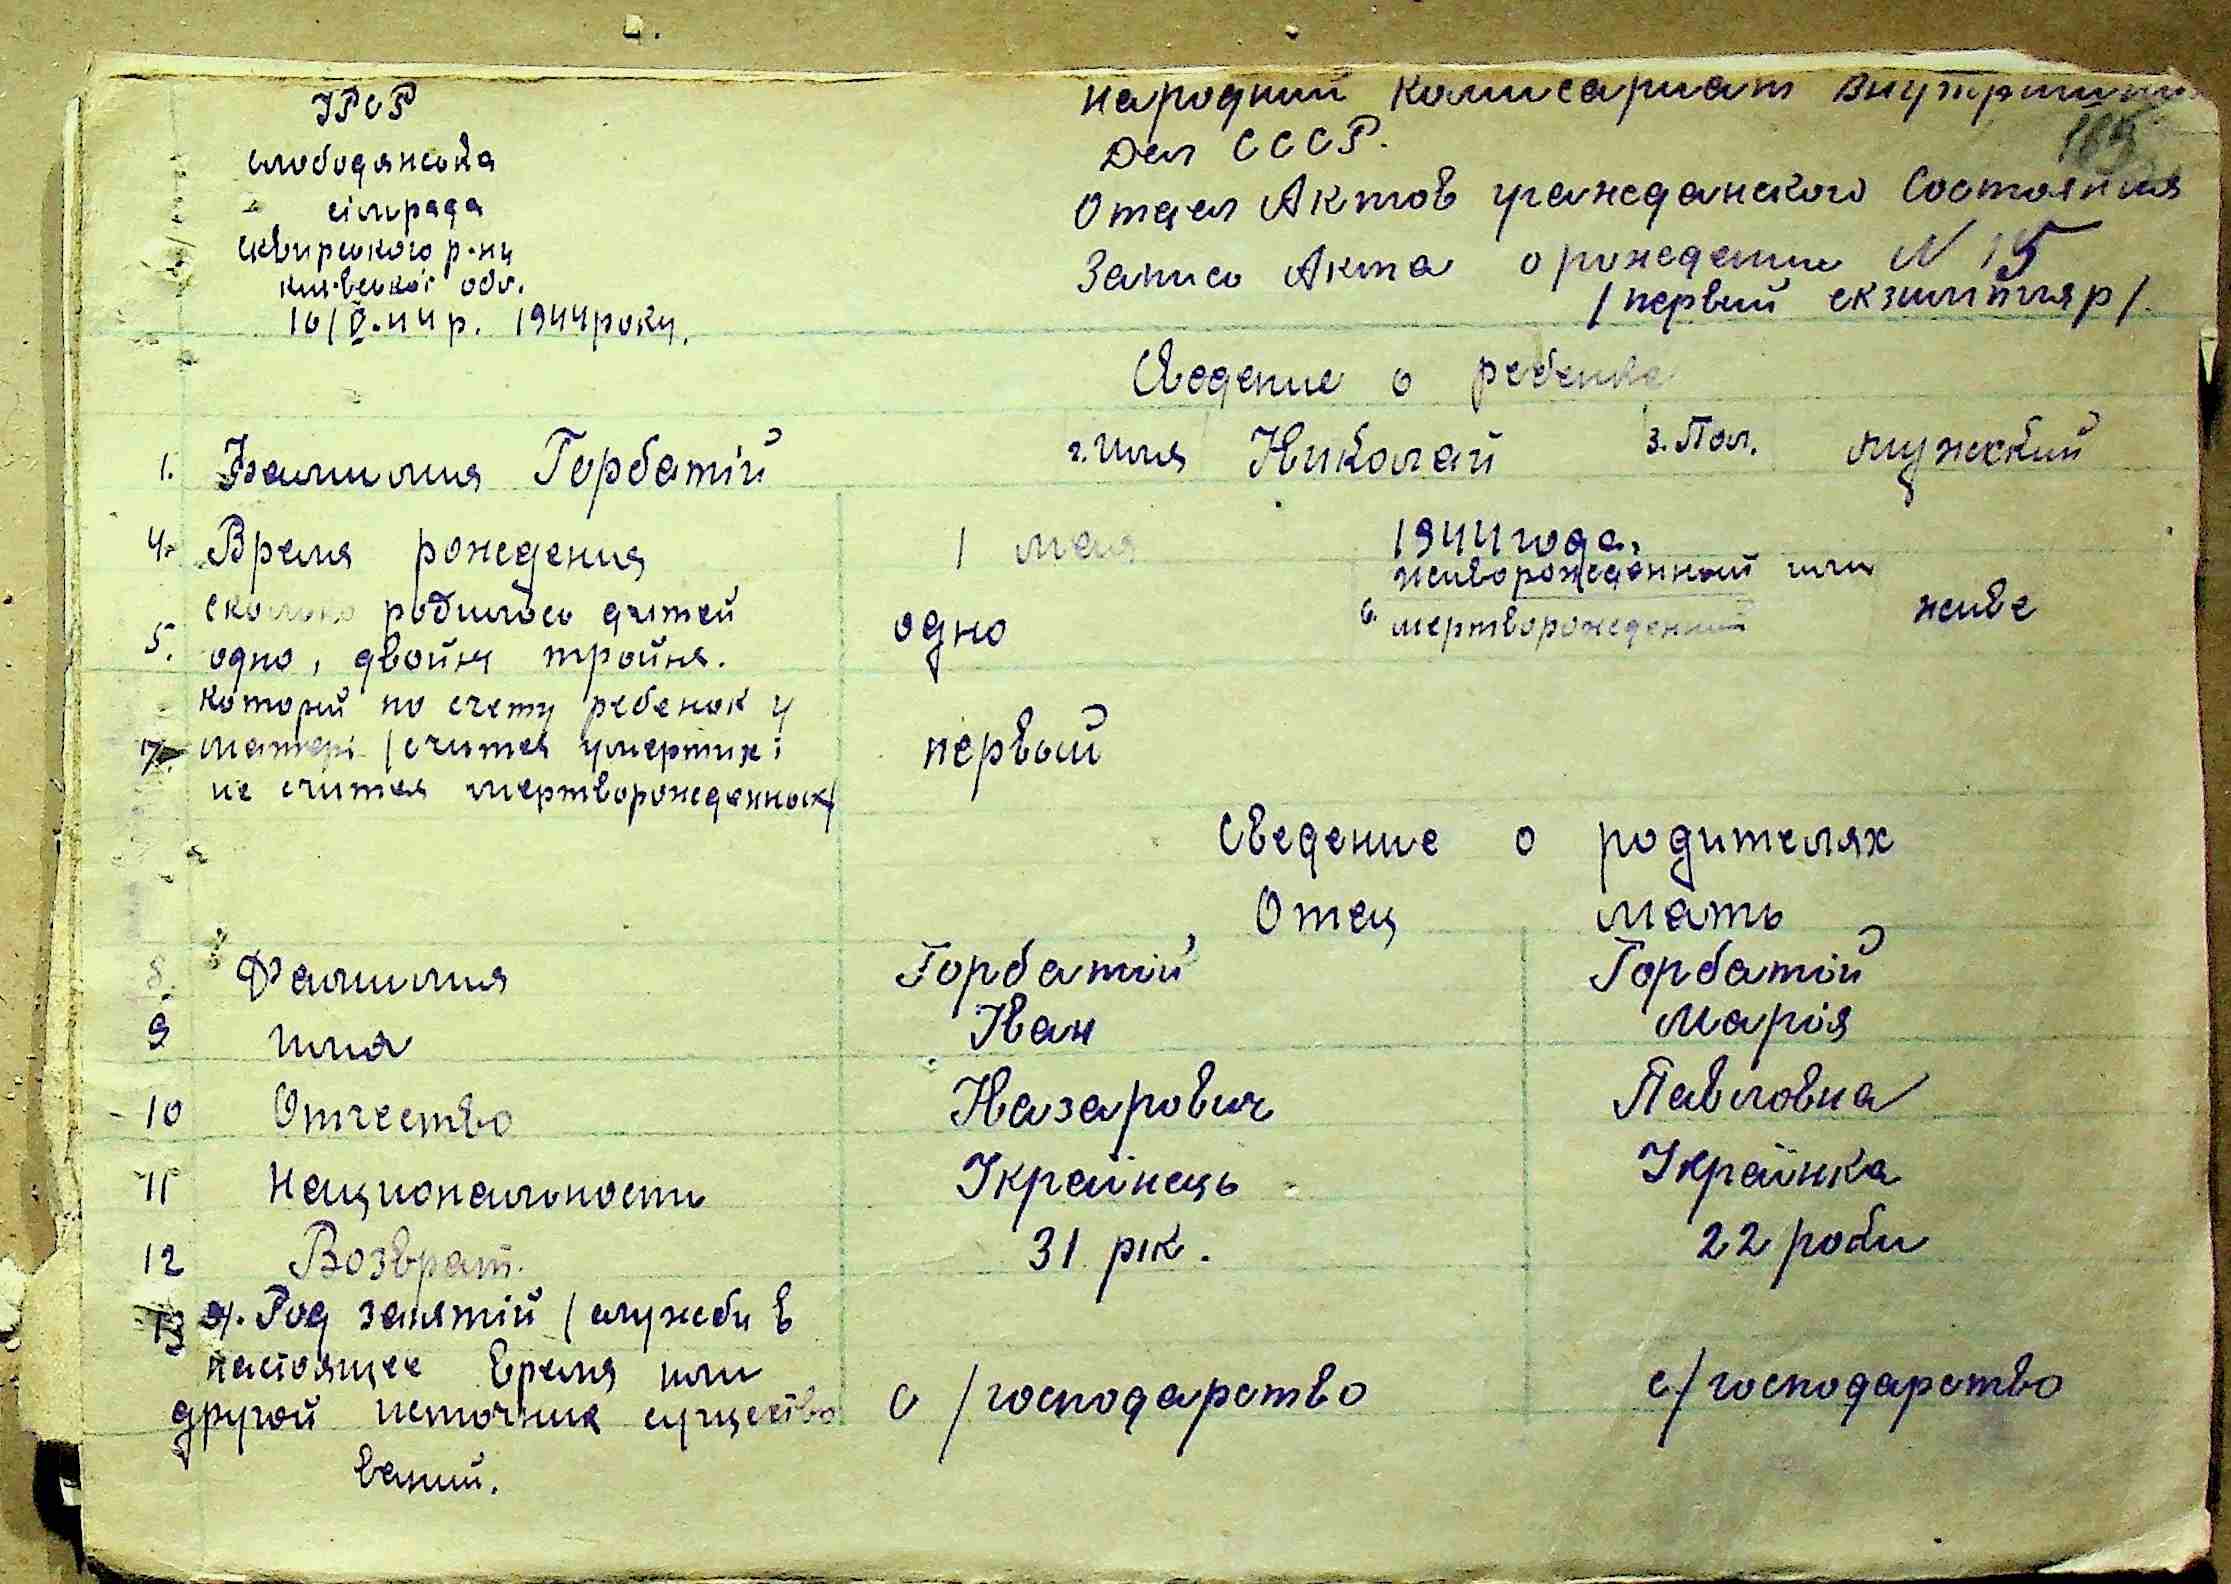 УРСР
слободянська
сільрада
сквирського р-ну
київської обл.
10/V-44р. 1944 року.
народний комисариат внутрених
Дел СССР.
165
Отдел Актов гражданского Состояния
Запись Акта о рождении N 15
/первий екземпляр/.
Сведение о ребенке
1. Фамилия Горбатій 2. Имя Николай 3. Пол. мужский
4. Время рождения 1 мая 1944 года.
5. сколько родилось дитей одно 6. живорожденный или живе
одно, двойня тройня. мертворожденний
которий по счету ребенок у
7. матері /считая умертих і первый
не считая мертворожденных/
Сведение о родителях
Отец мать
8. Фамилия Горбатій Горбатій
9 имя Іван Марія
10 Отчество Назарович Павловна
11 Национальность Українець Українка
12 Возврат. 31 рік. 22 роки
13 а/. Род занятій /служби в
настоящее время или
другой источник существо с/господарство с/господарство
ваний.